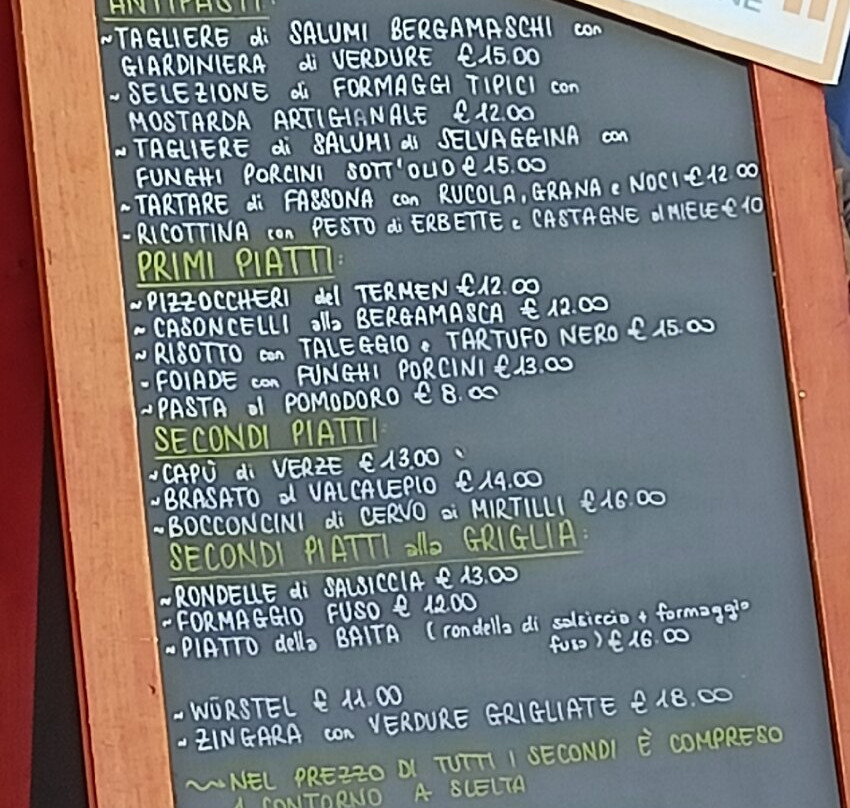 ANTIPASTI:
~TAGLIERE di SALUMI BERGAMASCHI con
GIARDINIERA di VERDURE €15.00
~ SELEZIONE di FORMAGGI TIPICI con
MOSTARDA ARTIGIANALE €12.00
~ TAGLIERE di SALUMI di SELVAGGINA con
FUNGHI PORCINI SOTT'OLIO €15.00
~TARTARE di FASSONA con RUCOLA, GRANA e NOCI €12 00
~RICOTTINA con PESTO di ERBETTE e CASTAGNE al MIELE €10
PRIMI PIATTI:
~PIZZOCCHERI del TERMEN €12.00
~ CASONCELLI alla BERGAMASCA € 12.00
~ RISOTTO con TALEGGIO e TARTUFO NERO € 15.00
~FOIADE con FUNGHI PORCINI €13.00
~PASTA al POMODORO € 8.00
SECONDI PIATTI:
~CAPÙ di VERZE €13.00
~BRASATO al VALCALEPIO €14.00
~BOCCONCINI di CERVO ai MIRTILLI €16.00
SECONDI PIATTI alla GRIGLIA:
~RONDELLE di SALSICCIA €13.00
~FORMAGGIO FUSO € 12.00
~PIATTO della BAITA (rondella di salsiccia + formaggio
fuso) €16.00
~WÜRSTEL € 11.00
~ZINGARA con VERDURE GRIGLIATE €18.00
~NEL PREZZO DI TUTTI I SECONDI È COMPRESO
1 CONTORNO A SCELTA